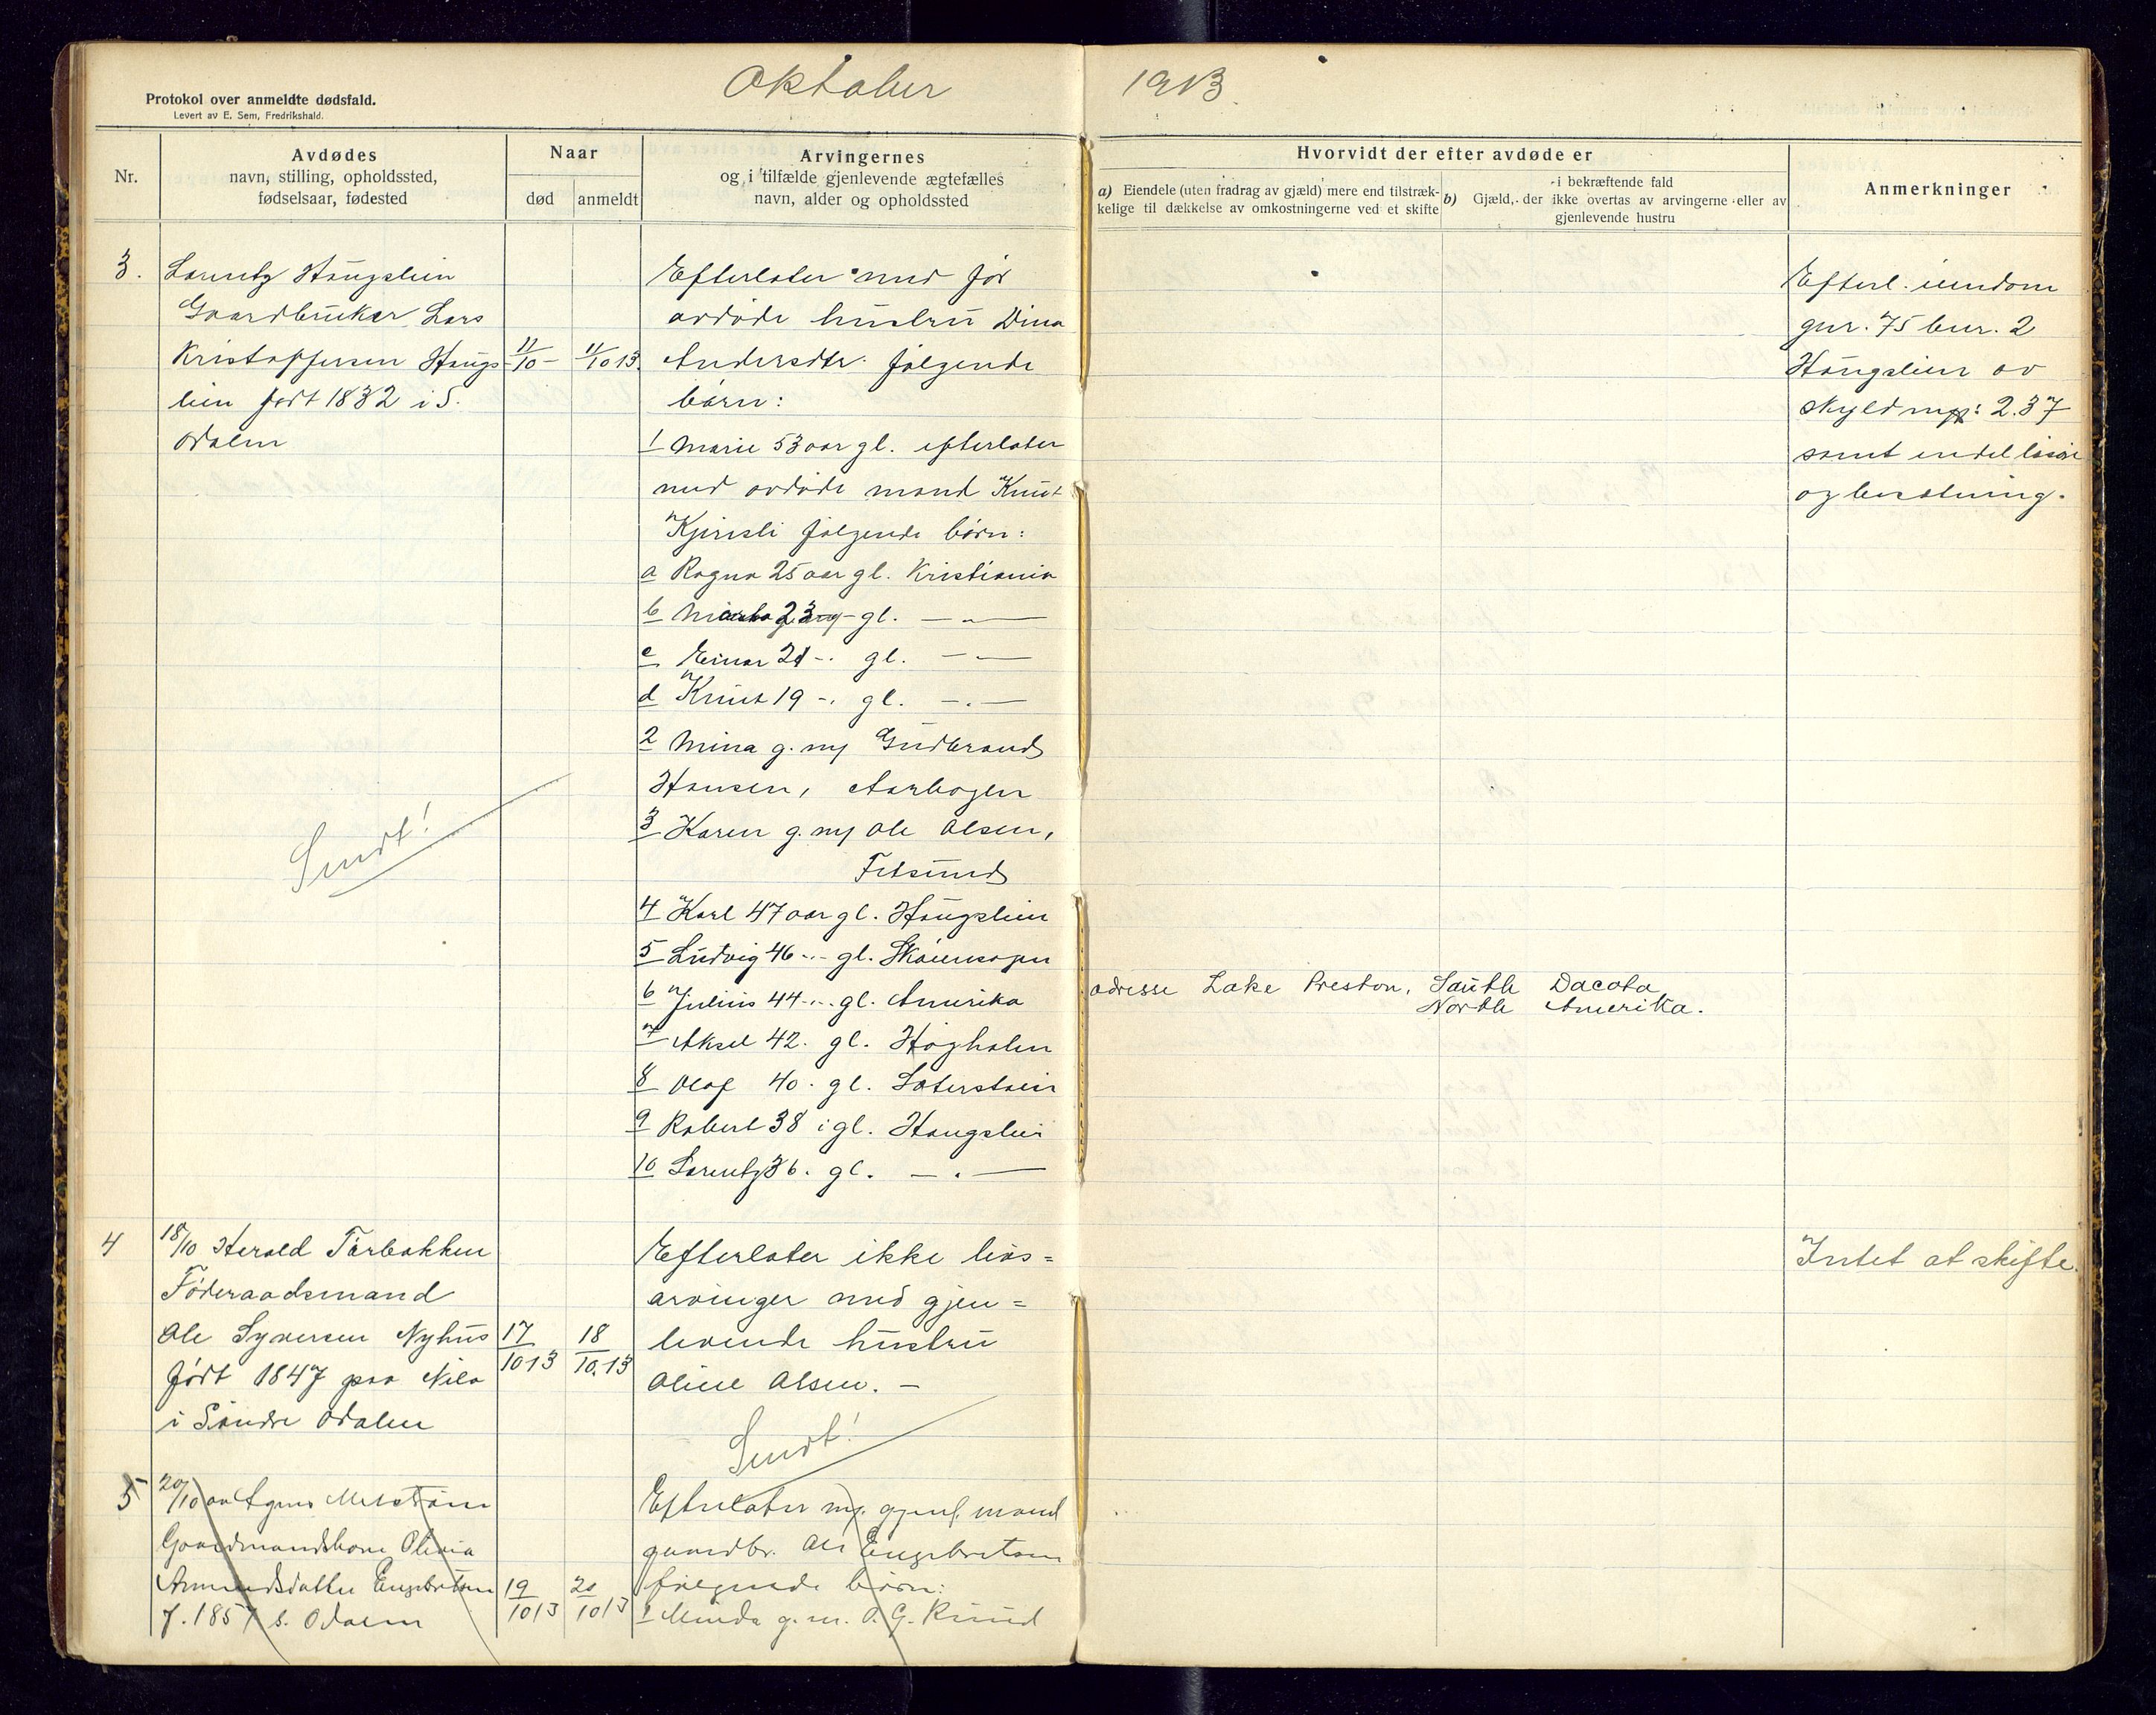 Oktober 1913
Protokol over anmeldte dødsfald.
Levert av E. Sem, Fredrikshald.
Nr.
Avdødes
navn, stilling, opholdssted,
fødselsaar, fødested
Naar
død
anmeldt
Arvingernes
og i tilfælde gjenlevende ægtefælles
navn, alder og opholdssted
Hvorvidt der efter avdøde er
a) Eiendele (uten fradrag av gjæld) mere end tilstræk-
kelige til dækkelse av omkostningerne ved et skifte
b) i bekræftende fald
Gjæld, der ikke overtas av arvingerne eller av
gjenlevende hustru
Anmerkninger
3.
Lorentz Haugslien
Gaardbruker Lars
Kristoffersen Haugs-
lien født 1832 i S.
Odalen
11/10 -
11/10 13.
Efterlater med før
avdøde hustru Dina
Andersdtr. følgende
børn:
1 Marie 53 aar gl. efterlater
med avdøde mand Knut
Kjernsli følgende børn:
a Ragna 25 aar gl. Kristiania
b Marta 23 gl. — " —
c Einar 21 -. gl. — " —
d Knut 19 -. gl. — " —
2 Mina g. m/ Gudbrand
Hansen, Aarbogen
3 Karen g. m/ Ole Olsen,
Fetsund
4 Karl 47 aar gl. Haugslien
5 Ludvig 46 -.- gl.
6 Julius 44 -.- gl. Amerika
adresse Lake Preston, South Dacota
North Amerika.
7 Aksel 42. gl. Høgholen
8 Olaf 40. gl.
9 Robert 38 i gl. Haugslien
10 Lorentz 36. gl. — . —
Efterl. eiendom
gnr. 75 bnr. 2
Haugslien av
skyld mrk: 2.37
samt endel løsøre
og besætning.
Sendt!
4
18/10 Herold Tørbakken
Føderaadsmand
Ole Syversen Nyhus
født 1847 paa Nilo
i Søndre Odalen
17/10 13
18/10. 13
Efterlater ikke livs=
arvinger med gjen=
levende hustru
Oline Olsen. —
Intet at skifte.
Sendt!
5
20/10 av Agnes Melstrøm
Gaardmandskone Olivia
Amundsdatter Engebretsen
f. 1857 S. Odalen
19/10 13
20/10 13
Efterlater m/. gjenl. mand
gaardbr. Ole Engebretsen
følgende børn:
1 Minda g. m. O. G. Ruud